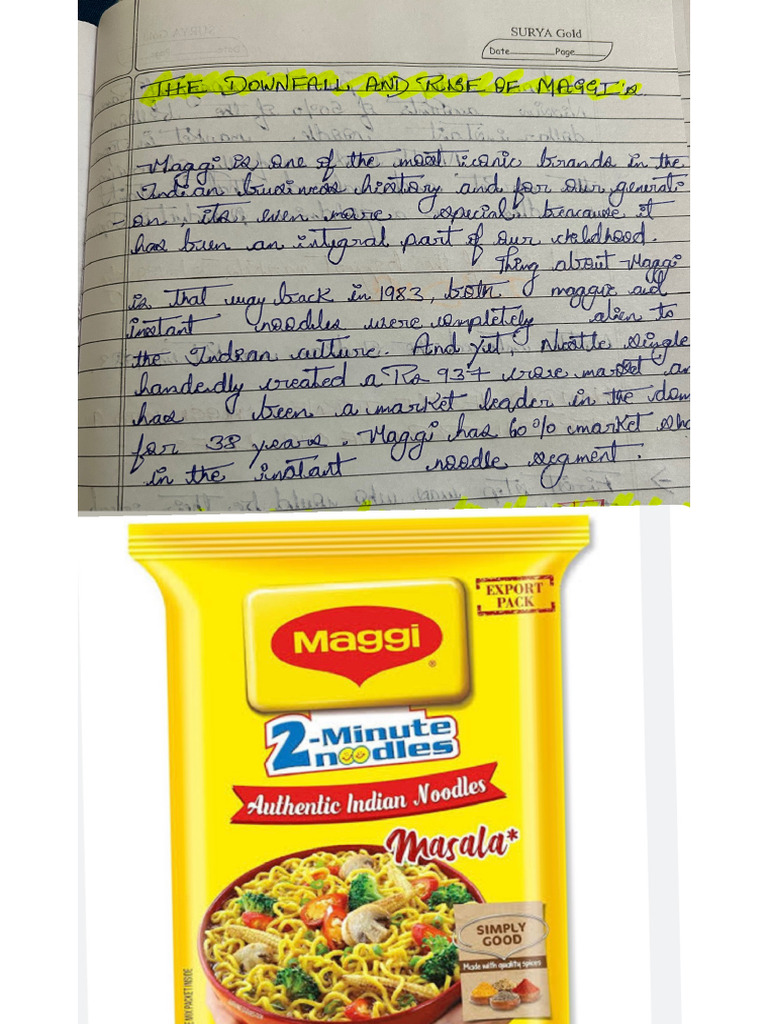 SURYA Gold
Date Page
THE DOWNFALL AND RISE OF MAGGI's
Maggi is one of the most iconic brands in the
Indian business history and for our generati
-on, its even more special beacause it
has been an integral part of our childhood.
Thing about Maggi
is that way back in 1983, both maggie aid
instant noodles were completely alien to
the Indian culture. And yet, Nestle single
handedly created a Rs 937 crore market an
has been a market leader in the dom
for 38 years. Maggi has 60% market sha
in the instant noodle segment.
EXPORT
PACK
Maggi
®
2-Minute
noodles
Authentic Indian Noodles
Masala*
SIMPLY
GOOD
Made with quality spices
E MIX PACKET INSIDE